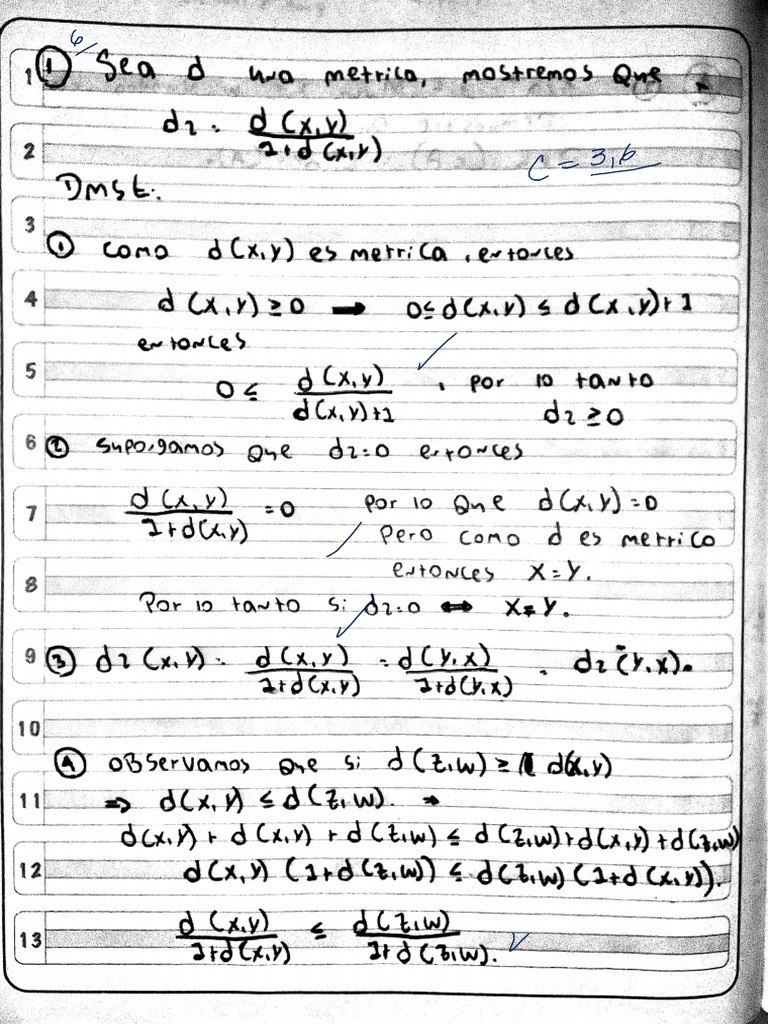 6/
1 ① Sea d una metrica, mostremos que
d1 = d(x,y) / 1+d(x,y)
2 C = 3,6
Dmst:
3
① como d(x,y) es metrica, entonces
4 d(x,y) ≥ 0 → 0 ≤ d(x,y) ≤ d(x,y)+1
entonces
5 0 ≤ d(x,y) / d(x,y)+1 , por lo tanto d1 ≥ 0
6 ② supongamos que d1=0 entonces
7 d(x,y) / 1+d(x,y) = 0 por lo que d(x,y)=0
Pero como d es metrico
8 entonces x=y.
Por lo tanto si d1=0 ↔ x=y.
9 ③ d1(x,y) = d(x,y) / 1+d(x,y) = d(y,x) / 1+d(y,x) = d1(y,x).
10
④ observamos que si d(z,w) ≥ d(x,y)
11 ⇒ d(x,y) ≤ d(z,w). ⇒
d(x,y) + d(x,y) + d(z,w) ≤ d(z,w)+d(x,y)+d(z,w)
12 d(x,y) (1+d(z,w)) ≤ d(z,w) (1+d(x,y)).
13 d(x,y) / 1+d(x,y) ≤ d(z,w) / 1+d(z,w).